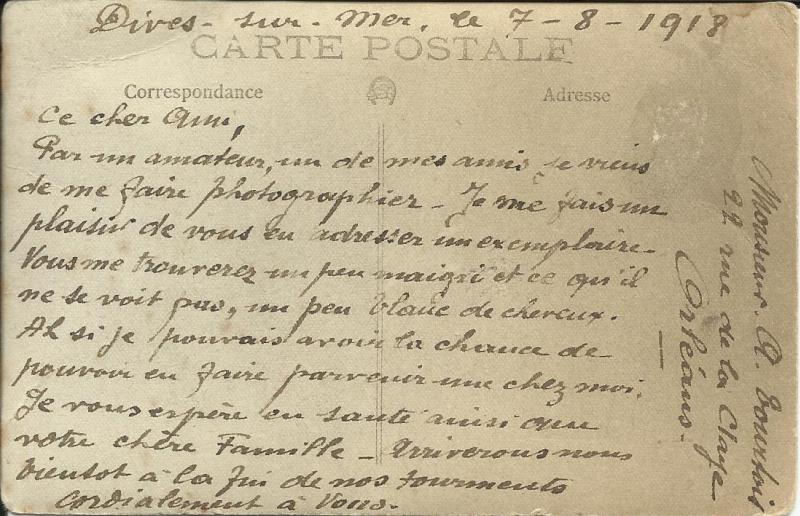 Dives-sur-Mer, le 7-8-1918
CARTE POSTALE
Correspondance
Adresse
Ce cher Ami,
Par un amateur, un de mes amis je viens
de me faire photographier - Je me fais un
plaisir de vous en adresser un exemplaire.
Vous me trouverez un peu maigri et ce qu'il
ne se voit pas, un peu blanc de cheveux.
Ah si je pouvais avoir la chance de
pouvoir en faire parvenir une chez moi.
Je vous espère en santé ainsi que
votre chère Famille - Arriverons nous
bientot à la fin de nos tourments
Cordialement à Vous.
Monsieur A. Tourtois
22 rue de la Claye
Orléans.